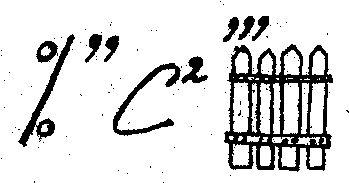 %” C² ’’’